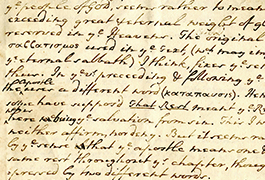 ye people of God, seem rather to mean
exceeding great & eternal weight of
reserved in ye Heavens. The original
σαββατισμος used in ye Text (wch may
ye eternal sabbath) I think, fixes ye
thus: In ye preceeding & following
uses a different word (καταπαυσις).
have supposd That Rest meant ye
being ye salvation from sin. This I
neither affirm, nor deny. But it seem
by ye sense that ye apostle means one
same rest throughout ye chapter, though
expressed by two different words.